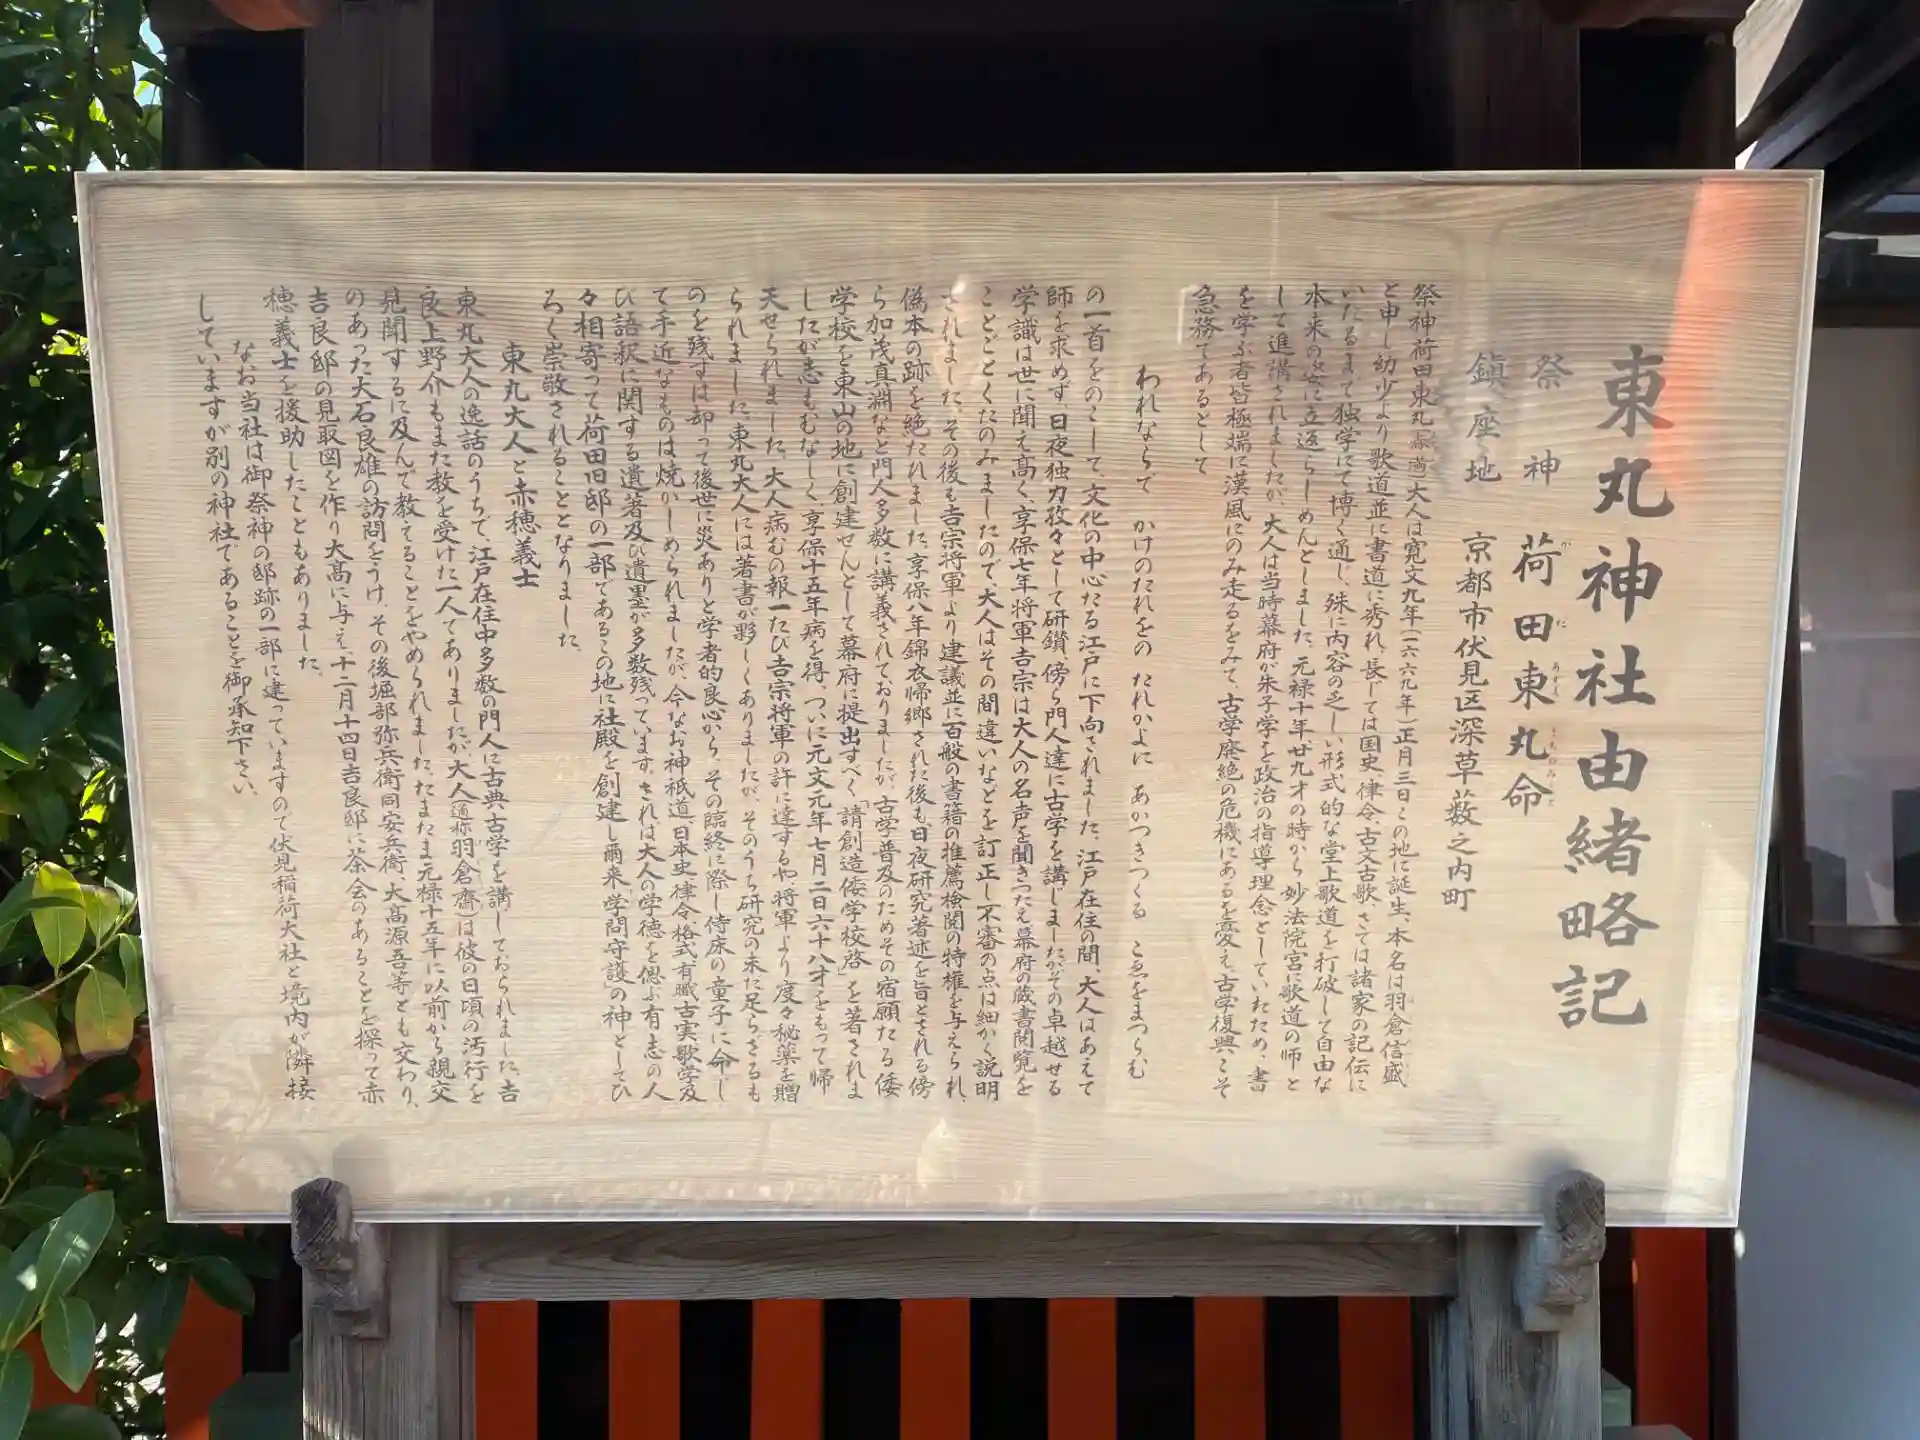 東丸神社由緒略記
祭神 荷田東丸命
鎮座地 京都市伏見区深草薮之内町
祭神荷田東丸大人は寛文九年(一六六九年)正月三日この地に誕生、本名は羽倉信盛
と申し幼少より歌道並に書道に秀れ、長じては国史律令、古文古歌、さては諸家の記伝に
いたるまで独学にて博く通し、殊に内容の乏しい形式的な堂上歌道を打破して自由な
本来の姿に立返らしめんとしました。元禄十年、廿九才の時から妙法院宮に歌道の師と
して進講されましたが、大人は当時幕府が朱子学を政治の指導理念としていたため、書
を学ぶ者皆極端に漢風にのみ走るをみて、古学廃絶の危機にあるを憂え、古学復興こそ
急務であるとして
われならで かけのたれをの たれかよに あかつきつくる こゑをまつらむ
の一首をのこして、文化の中心たる江戸に下向されました。江戸在住の間、大人はあえて
師を求めず、日夜独力孜々として研鑽、傍ら門人達に古学を講じましたがその卓越せる
学識は世に聞え高く、享保七年将軍吉宗は大人の名声を聞きつたえ幕府の蔵書閲覧を
ことごとくたのみましたので、大人はその間違いなどを訂正し不審の点は細かく説明
されました。その後も吉宗将軍より建議並に百般の書籍の推薦検閲の特権を与えられ、
偽本の跡を絶たれました。享保八年錦衣帰郷された後も、日夜研究著述を旨とされる傍
ら加茂真淵など門人多数に講義されておりましたが、古学普及のためその宿願たる倭
学校を東山の地に創建せんとして幕府に提出すべく「請創造倭学校啓」を著されま
したが志もむなしく、享保十五年病を得、ついに元文元年七月二日六十八才をもって帰
天せられました。大人病むの報一たび吉宗将軍の許に達するや将軍より度々秘薬を贈
られました。東丸大人には著書が夥しくありましたが、そのうち研究の未た足らざるも
のを残すは却って後世に災ありと学者的良心から、その臨終に際し侍床の童子に命し
て手近なものは焼かしめられましたが、今なお神祇道、日本史律令、格式、有職古実歌学及
び語釈に関する遺著及び遺墨が多数残っています。されば大人の学徳を偲ぶ有志の人
々相寄って荷田旧邸の一部であるこの地に社殿を創建し爾来「学問守護」の神としてひ
ろく崇敬されることとなりました。
東丸大人と赤穂義士
東丸大人の逸話のうちで、江戸在住中多数の門人に古典、古学を講じておられました。吉
良上野介もまた教を受けた一人でありましたが大人(通称羽倉齋)は彼の日頃の汚行を
見聞するに及んで教えることをやめられました。たまたま元禄十五年に以前から親交
のあった大石良雄の訪問をうけ、その後堀部弥兵衛同安兵衛、大高源吾等とも交わり、
吉良邸の見取図を作り大高に与え、十二月十四日吉良邸に茶会のあることを探って赤
穂義士を援助したこともありました。
なお当社は御祭神の邸跡の一部に建っていますので伏見稲荷大社と境内が隣接
していますが別の神社であることを御承知下さい。